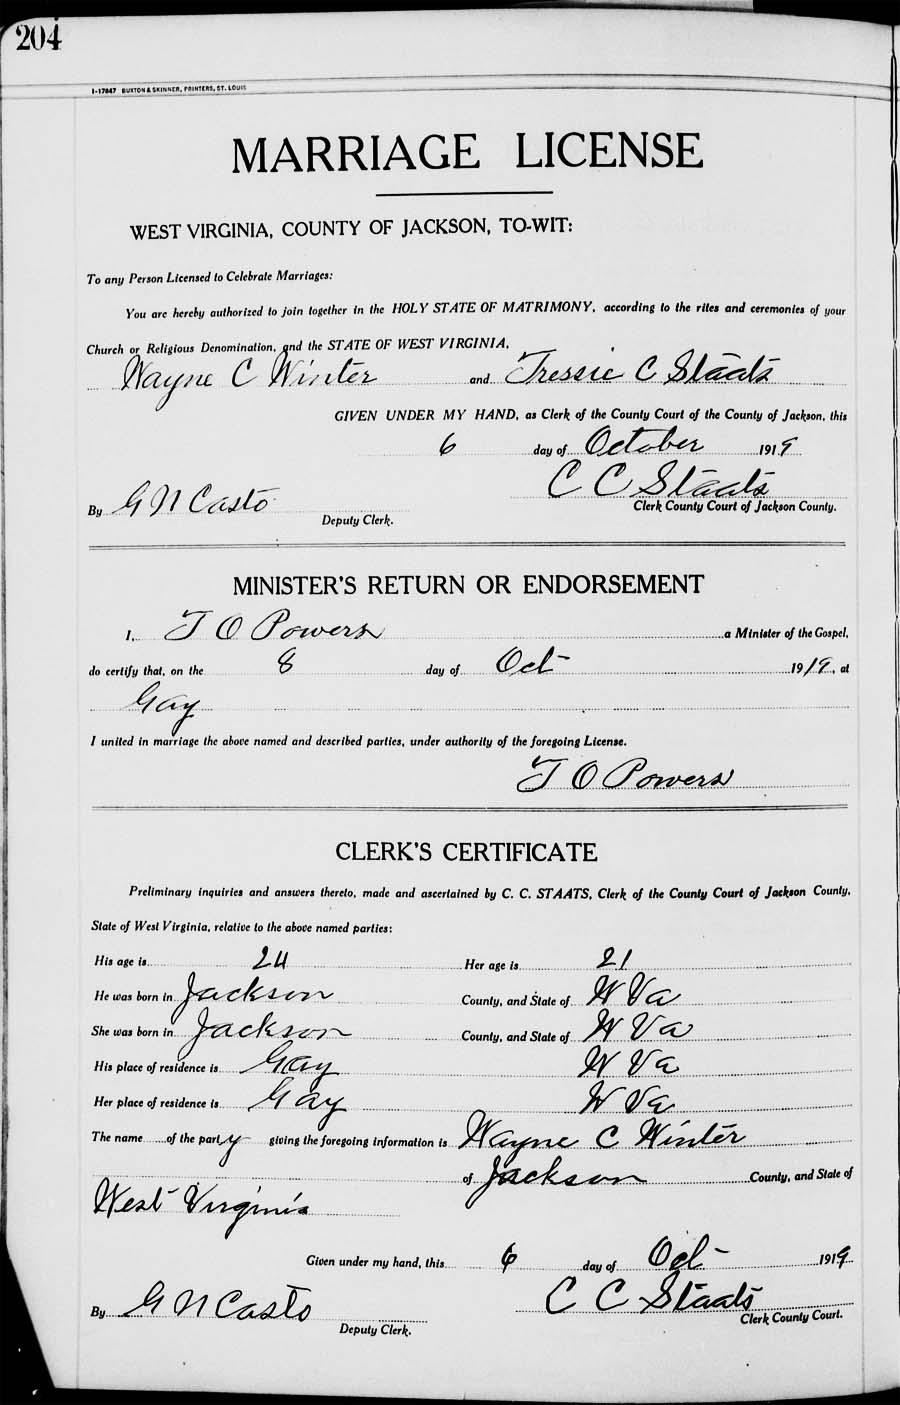 204
I-17847 BUXTON & SKINNER, PRINTERS, ST. LOUIS
MARRIAGE LICENSE
WEST VIRGINIA, COUNTY OF JACKSON, TO-WIT:
To any Person Licensed to Celebrate Marriages:
You are hereby authorized to join together in the HOLY STATE OF MATRIMONY, according to the rites and ceremonies of your
Church or Religious Denomination, and the STATE OF WEST VIRGINIA,
Wayne C Winter and Tressie C Staats
GIVEN UNDER MY HAND, as Clerk of the County Court of the County of Jackson, this
6 day of October 1919
C C Staats
By G N Casto Clerk County Court of Jackson County.
Deputy Clerk.
MINISTER'S RETURN OR ENDORSEMENT
I, T O Powers a Minister of the Gospel,
do certify that, on the 8 day of Oct 1919, at
Gay
I united in marriage the above named and described parties, under authority of the foregoing License.
T O Powers
CLERK'S CERTIFICATE
Preliminary inquiries and answers thereto, made and ascertained by C. C. STAATS, Clerk of the County Court of Jackson County,
State of West Virginia, relative to the above named parties:
His age is 24 Her age is 21
He was born in Jackson County, and State of W Va
She was born in Jackson County, and State of W Va
His place of residence is Gay W Va
Her place of residence is Gay W Va
The name of the party giving the foregoing information is Wayne C Winter
of Jackson County, and State of
West Virginia
Given under my hand, this 6 day of Oct 1919
C C Staats
By G N Casto Clerk County Court.
Deputy Clerk.